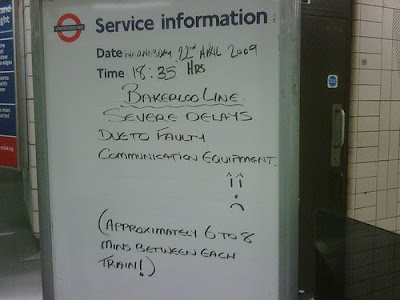 UNDERGROUND
Service information
Date WEDNESDAY 22nd APRIL 2009
Time 18:35 HRS
BAKERLOO LINE
SEVERE DELAYS
DUE TO FAULTY
COMMUNICATION EQUIPMENT.
(APPROXIMATELY 6 TO 8
MINS BETWEEN EACH
TRAIN!)